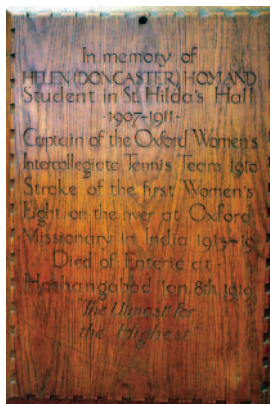 In memory of
HELEN (DONCASTER) HOYLAND
Student in St. Hilda's Hall
-1907-1911-
Captain of the Oxford Women's
Intercollegiate Tennis Team 1910
Stroke of the first Women's
Eight on the river at Oxford
Missionary in India 1913-19
Died of Enteric at
Hoshangabad Jan. 8th 1919
"The Utmost for
the Highest"